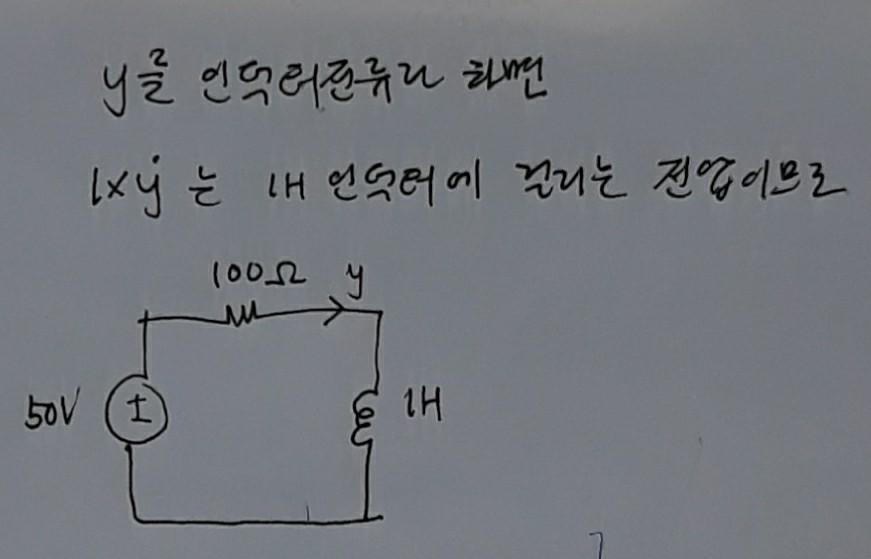 y를 인덕터전류라 하면
1×ẏ 는 1H 인덕터에 걸리는 전압이므로
100Ω y
50V ± 1H